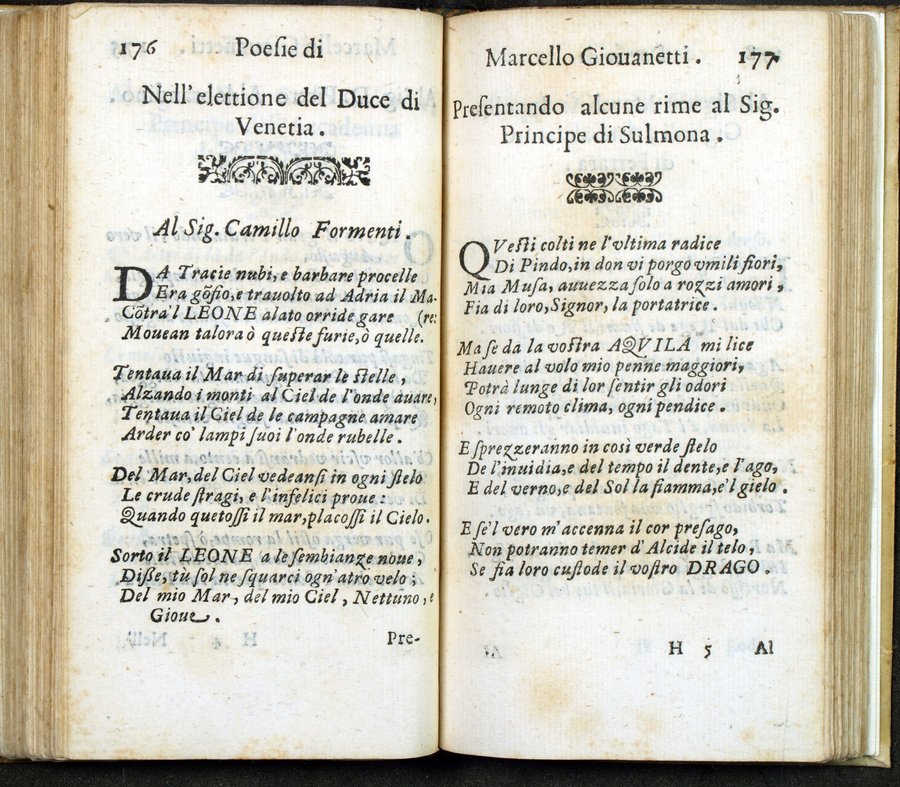 176 Poeſie di
Nell'elettione del Duce di
Venetia.
Al Sig. Camillo Formenti.
DA Tracie nubi, e barbare procelle
Era gõfio, e trauolto ad Adria il Ma-
Cõtra'l LEONE alato orride gare (re:
Mouean talora ò queſte furie, ò quelle.
Tentaua il Mar di ſuperar le ſtelle,
Alzando i monti al Ciel de l'onde auare,
Tentaua il Ciel de le campagne amare
Arder co' lampi ſuoi l'onde rubelle.
Del Mar, del Ciel vedeanſi in ogni ſtelo
Le crude ſtragi, e l'infelici proue:
Quando quetoſſi il mar, placoſſi il Cielo.
Sorto il LEONE a le ſembianze noue,
Diſſe, tu ſol ne ſquarci ogn'atro velo;
Del mio Mar, del mio Ciel, Nettuno, e
Gioue.
H 4 Pre-
Marcello Giouanetti. 177
Preſentando alcune rime al Sig.
Principe di Sulmona.
QVeſti colti ne l'vltima radice
Di Pindo, in don vi porgo vmili fiori,
Mia Muſa, auuezza ſolo a rozzi amori,
Fia di loro, Signor, la portatrice.
Ma ſe da la voſtra AQVILA mi lice
Hauere al volo mio penne maggiori,
Potrà lunge di lor ſentir gli odori
Ogni remoto clima, ogni pendice.
E ſprezzeranno in così verde ſtelo
De l'inuidia, e del tempo il dente, e l'ago,
E del verno, e del Sol la fiamma, e'l gielo.
E ſe'l vero m'accenna il cor preſago,
Non potranno temer d'Alcide il telo,
Se fia loro cuſtode il voſtro DRAGO.
H 5 Al